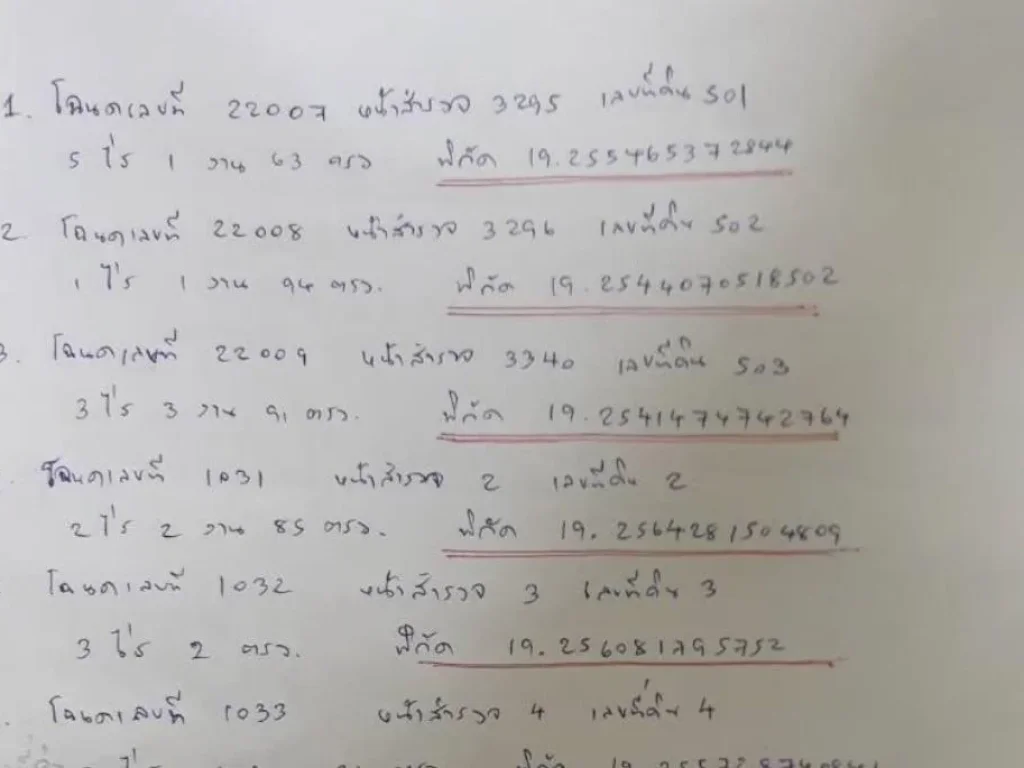 1. โฉนดเลขที่ 22007 หน้าสำรวจ 3295 เลขที่ดิน 501
5 ไร่ 1 งาน 63 ตรว พิกัด 19.255465372844
2 โฉนดเลขที่ 22008 หน้าสำรวจ 3296 เลขที่ดิน 502
1 ไร่ 1 งาน 94 ตรว. พิกัด 19.2544070518502
3. โฉนดเลขที่ 22009 หน้าสำรวจ 3340 เลขที่ดิน 503
3 ไร่ 3 งาน 91 ตรว. พิกัด 19.2541474742764
โฉนดเลขที่ 1031 หน้าสำรวจ 2 เลขที่ดิน 2
2 ไร่ 2 งาน 85 ตรว. พิกัด 19.2564281504809
โฉนดเลขที่ 1032 หน้าสำรวจ 3 เลขที่ดิน 3
3 ไร่ 2 ตรว. พิกัด 19.256081795752
โฉนดเลขที่ 1033 หน้าสำรวจ 4 เลขที่ดิน 4
ไร่ พิกัด